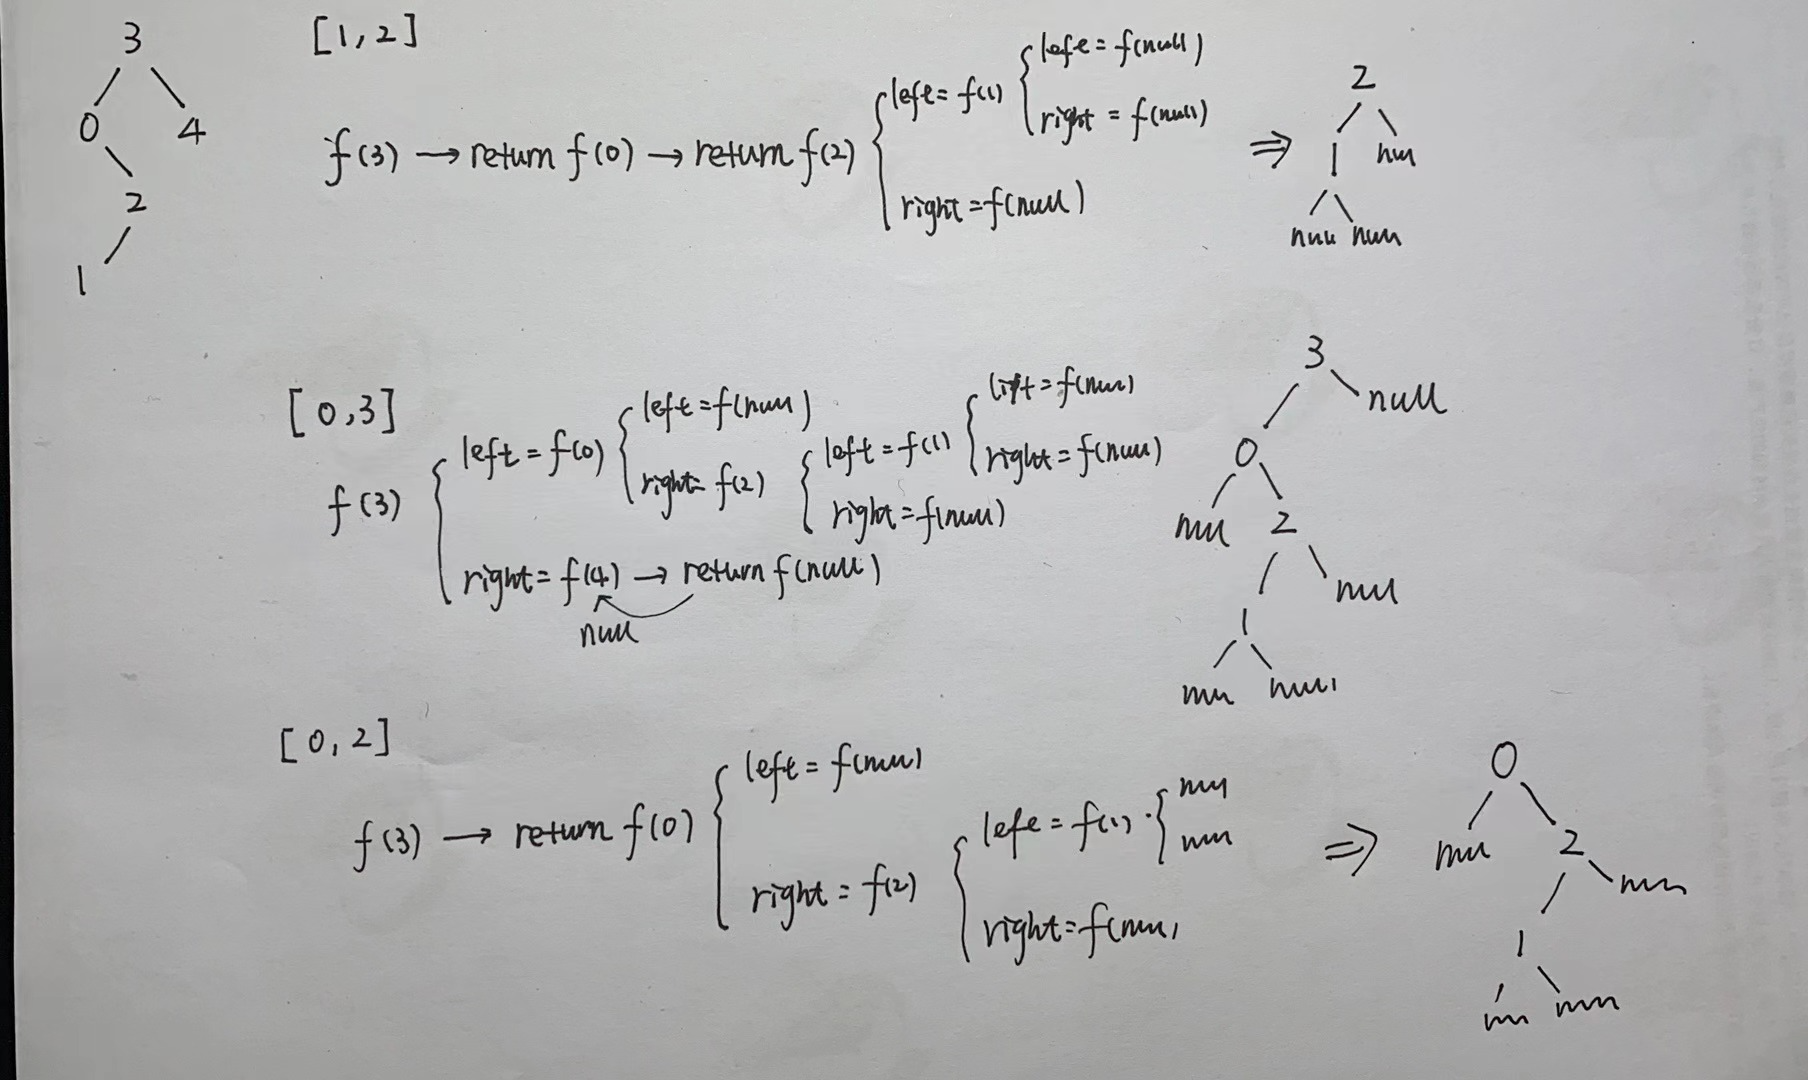 3
0 4
2
1
[1,2]
f(3) → return f(0) → return f(2)
left = f(1)
left = f(null)
right = f(null)
right = f(null)
⇒
2
1 null
null null
[0,3]
f(3)
left = f(0)
left = f(null)
right = f(2)
left = f(1)
left = f(null)
right = f(null)
right = f(null)
right = f(4) → return f(null)
null
3
0 null
null 2
1 null
null null
[0,2]
f(3) → return f(0)
left = f(null)
right = f(2)
left = f(1)
null
null
right = f(null)
⇒
0
null 2
1 null
null null